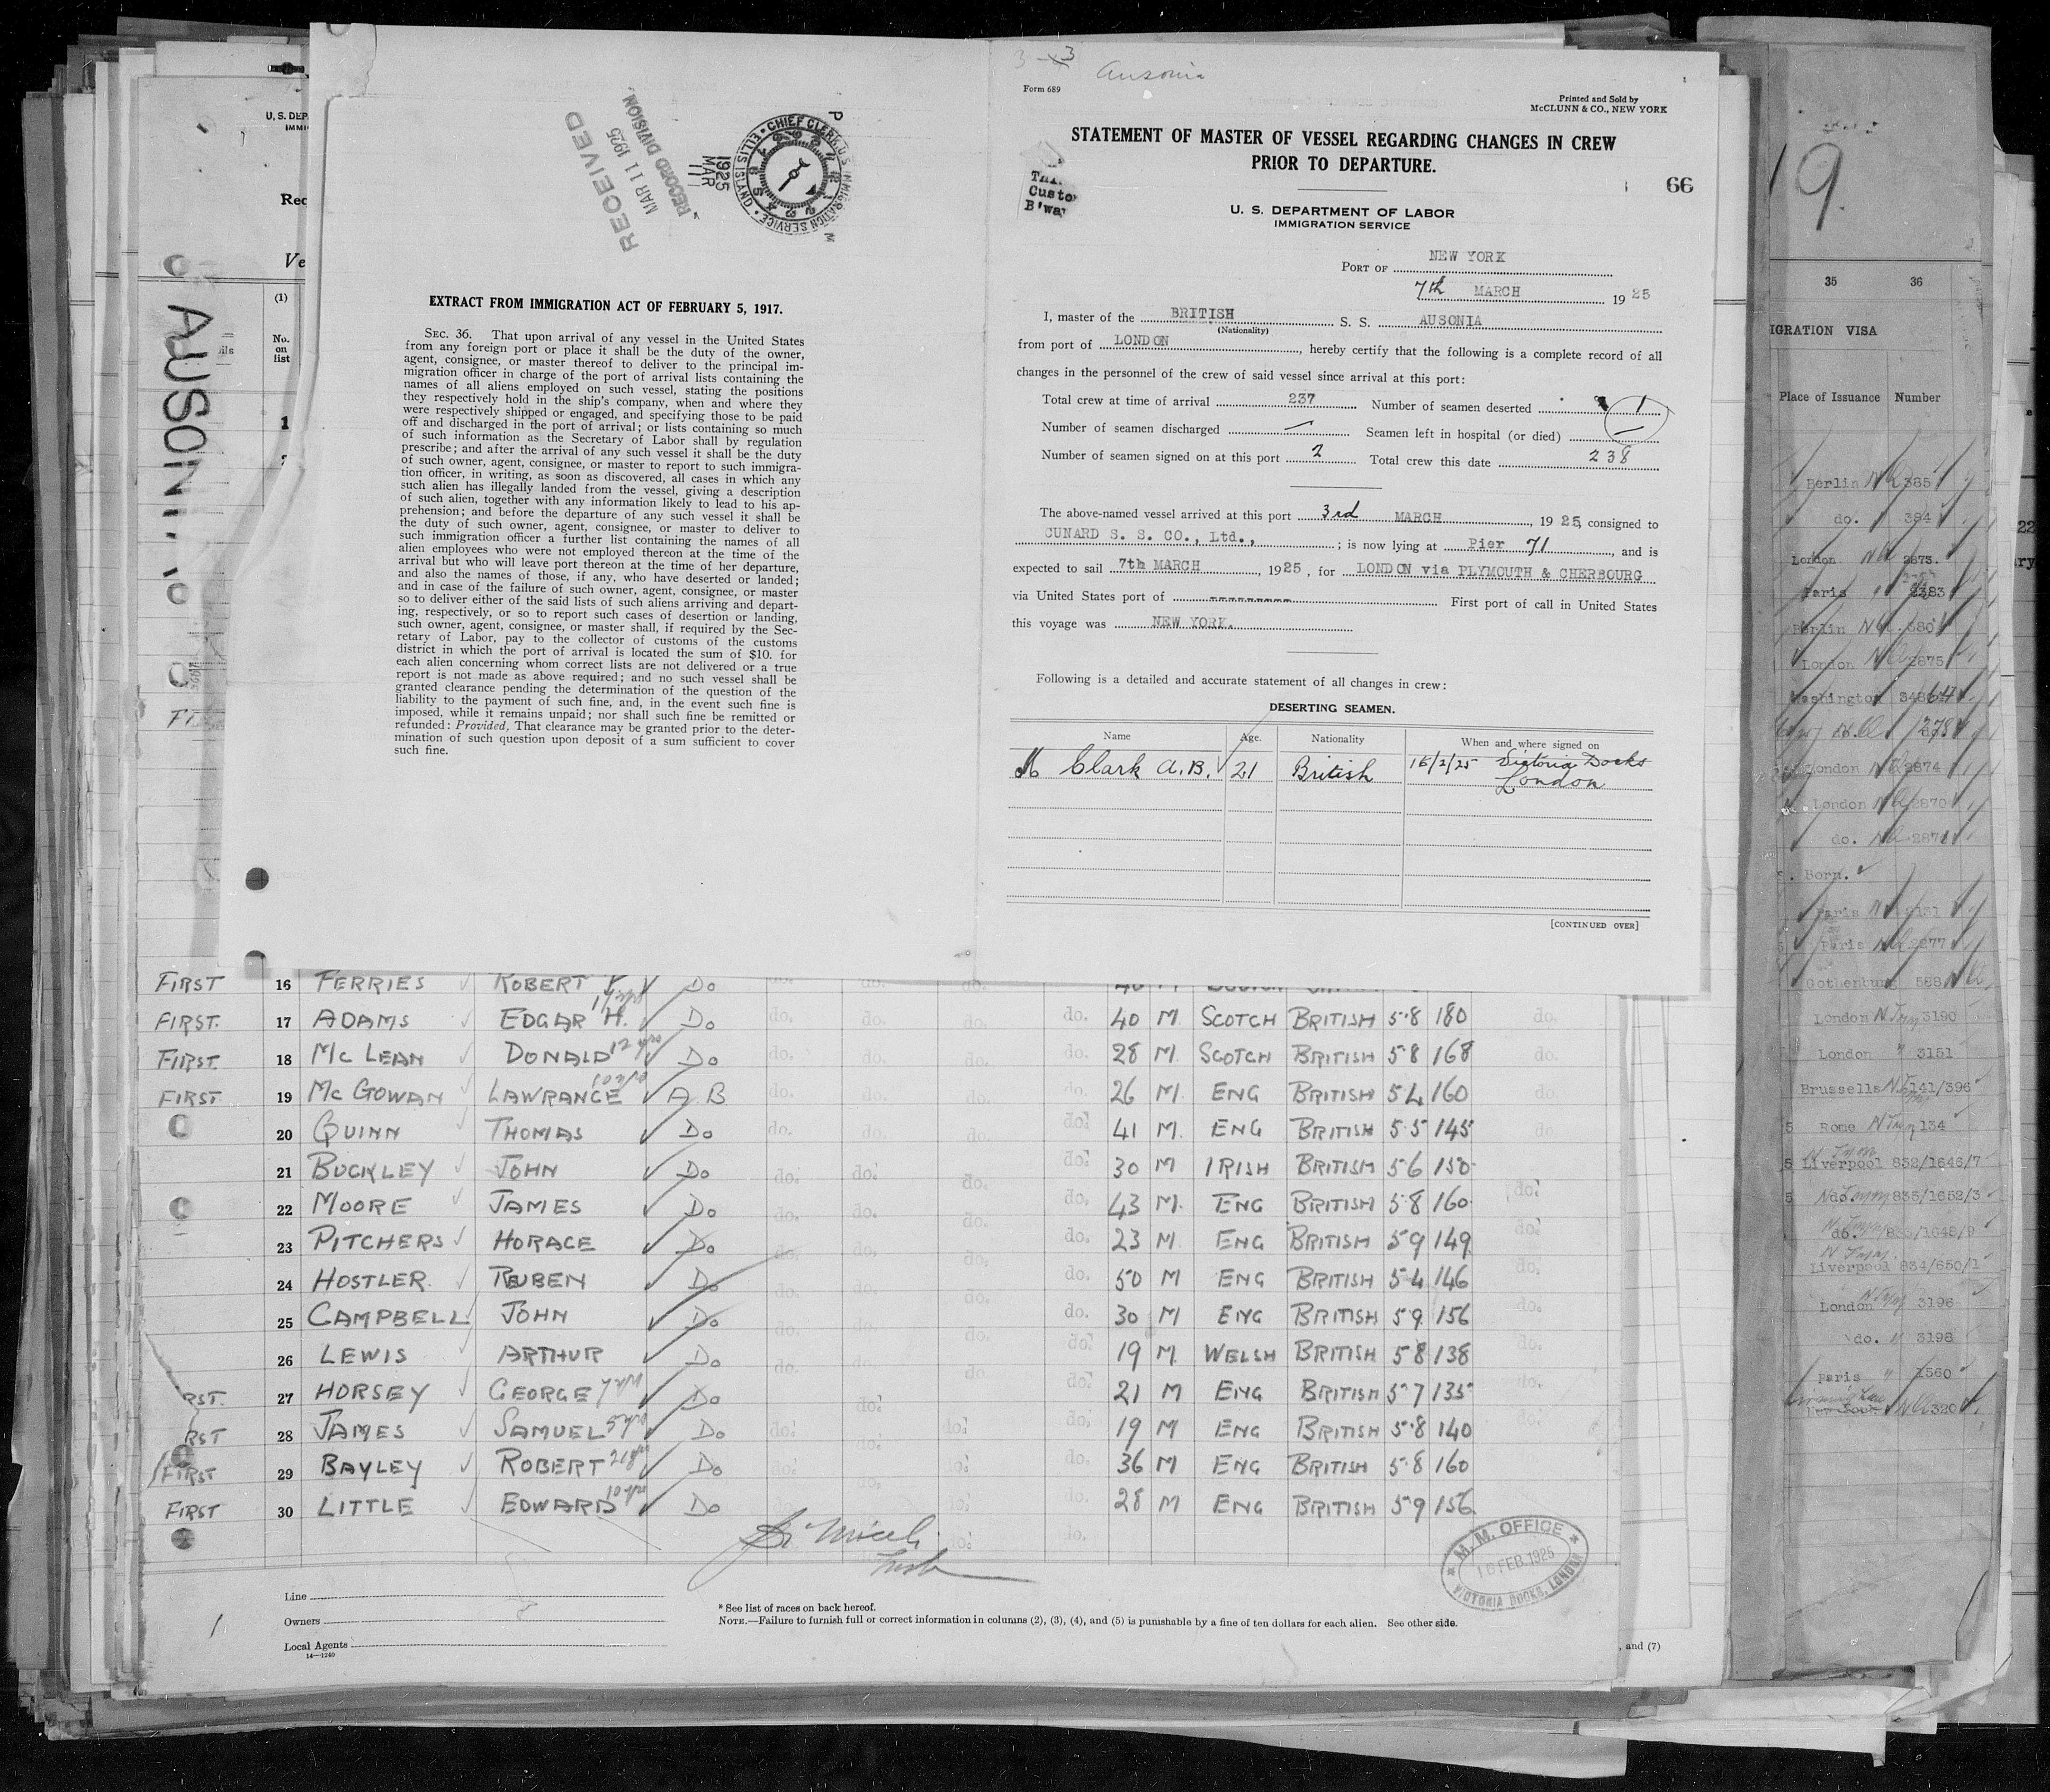 U. S. DEP
IMMI
Rec
Ve
(1)
No.
on
list
1
AUSONI
RECEIVED
MAR 11 1925
RECORD DIVISION.
1925
MAR
11
CHIEF CLERK, U.S. IMMIGRATION SERVICE · ELLIS ISLAND
P
M
EXTRACT FROM IMMIGRATION ACT OF FEBRUARY 5, 1917.
SEC. 36. That upon arrival of any vessel in the United States
from any foreign port or place it shall be the duty of the owner,
agent, consignee, or master thereof to deliver to the principal im-
migration officer in charge of the port of arrival lists containing the
names of all aliens employed on such vessel, stating the positions
they respectively hold in the ship's company, when and where they
were respectively shipped or engaged, and specifying those to be paid
off and discharged in the port of arrival; or lists containing so much
of such information as the Secretary of Labor shall by regulation
prescribe; and after the arrival of any such vessel it shall be the duty
of such owner, agent, consignee, or master to report to such immigra-
tion officer, in writing, as soon as discovered, all cases in which any
such alien has illegally landed from the vessel, giving a description
of such alien, together with any information likely to lead to his ap-
prehension; and before the departure of any such vessel it shall be
the duty of such owner, agent, consignee, or master to deliver to
such immigration officer a further list containing the names of all
alien employees who were not employed thereon at the time of the
arrival but who will leave port thereon at the time of her departure,
and also the names of those, if any, who have deserted or landed;
and in case of the failure of such owner, agent, consignee, or master
so to deliver either of the said lists of such aliens arriving and depart-
ing, respectively, or so to report such cases of desertion or landing,
such owner, agent, consignee, or master shall, if required by the Sec-
retary of Labor, pay to the collector of customs of the customs
district in which the port of arrival is located the sum of $10. for
each alien concerning whom correct lists are not delivered or a true
report is not made as above required; and no such vessel shall be
granted clearance pending the determination of the question of the
liability to the payment of such fine, and, in the event such fine is
imposed, while it remains unpaid; nor shall such fine be remitted or
refunded: Provided, That clearance may be granted prior to the deter-
mination of such question upon deposit of a sum sufficient to cover
such fine.
3 3
Ausonia
Form 689
Printed and Sold by
McCLUNN & CO., NEW YORK
STATEMENT OF MASTER OF VESSEL REGARDING CHANGES IN CREW
PRIOR TO DEPARTURE.
Custo
B'wa
66
U. S. DEPARTMENT OF LABOR
IMMIGRATION SERVICE
PORT OF NEW YORK
7th MARCH 1925
I, master of the BRITISH S. S. AUSONIA
(Nationality)
from port of LONDON, hereby certify that the following is a complete record of all
changes in the personnel of the crew of said vessel since arrival at this port:
Total crew at time of arrival 237 Number of seamen deserted 1
Number of seamen discharged — Seamen left in hospital (or died) —
Number of seamen signed on at this port 2 Total crew this date 238
The above-named vessel arrived at this port 3rd MARCH, 1925, consigned to
CUNARD S. S. CO., Ltd., ; is now lying at Pier 71, and is
expected to sail 7th MARCH, 1925, for LONDON via PLYMOUTH & CHERBOURG
via United States port of --------- First port of call in United States
this voyage was NEW YORK.
Following is a detailed and accurate statement of all changes in crew:
DESERTING SEAMEN.
Name Age. Nationality When and where signed on
M Clark A.B. 21 British 16/2/25 Victoria Docks
London
[CONTINUED OVER]
FIRST 16 FERRIES ROBERT Do
FIRST. 17 ADAMS EDGAR H. Do do. do. do. do. 40 M SCOTCH BRITISH 5.8 180 do.
FIRST. 18 Mc LEAN DONALD 12 yrs Do do. do. do. do. 28 M. SCOTCH BRITISH 5 8 168 do.
FIRST 19 Mc GOWAN LAWRANCE 10 yrs A B do. do. do. do. 26 M. ENG BRITISH 5 4 160 do.
20 QUINN THOMAS Do do. do. do. do. 41 M. ENG BRITISH 5.5 145 do
21 BUCKLEY JOHN Do do. do. do. do. 30 M IRISH BRITISH 5 6 150
22 MOORE JAMES Do do. do. do. do. 43 M. ENG BRITISH 5 8 160 do.
23 PITCHERS HORACE Do do. do. do. do. 23 M. ENG BRITISH 5 9 149 do.
24 HOSTLER REUBEN Do do. do. do. do. 50 M ENG BRITISH 5 4 146 do.
25 CAMPBELL JOHN Do do. do. do. do. 30 M ENG BRITISH 5 9 156 do.
26 LEWIS ARTHUR Do do. do. do. do. 19 M. WELSH BRITISH 5 8 138 do.
RST. 27 HORSEY GEORGE 7 yrs Do do. do. 21 M ENG BRITISH 5 7 135 do.
RST 28 JAMES SAMUEL 5 yrs Do do. do. do. do. 19 M ENG BRITISH 5.8 140 do.
FIRST 29 BAYLEY ROBERT Do do. do. do. do. 36 M ENG BRITISH 5.8 160
FIRST 30 LITTLE EDWARD 10 yrs Do do. do. do. do. 28 M ENG BRITISH 5 9 156
M. M. OFFICE
16 FEB. 1925
VICTORIA DOCKS, LONDON
Line
Owners
Local Agents
14—1240
* See list of races on back hereof.
NOTE.—Failure to furnish full or correct information in columns (2), (3), (4), and (5) is punishable by a fine of ten dollars for each alien. See other side.
, and (7)
19.
35 36
IGRATION VISA
Place of Issuance Number
Berlin 385
do. 384
London 2873.
Paris 2383
Berlin 380
London 2875
Washington
London 2874
London 2870
do. 2871
Born.
Paris
Paris 2877
Gothenburg 583
London 3190
London " 3151
Brussells 141/396
Rome 134
Liverpool 832/1646/7
do. 835/1652/3
do.
Liverpool 834/650/1
London 3196
do. " 3198
Paris " 1560
320
22
ry